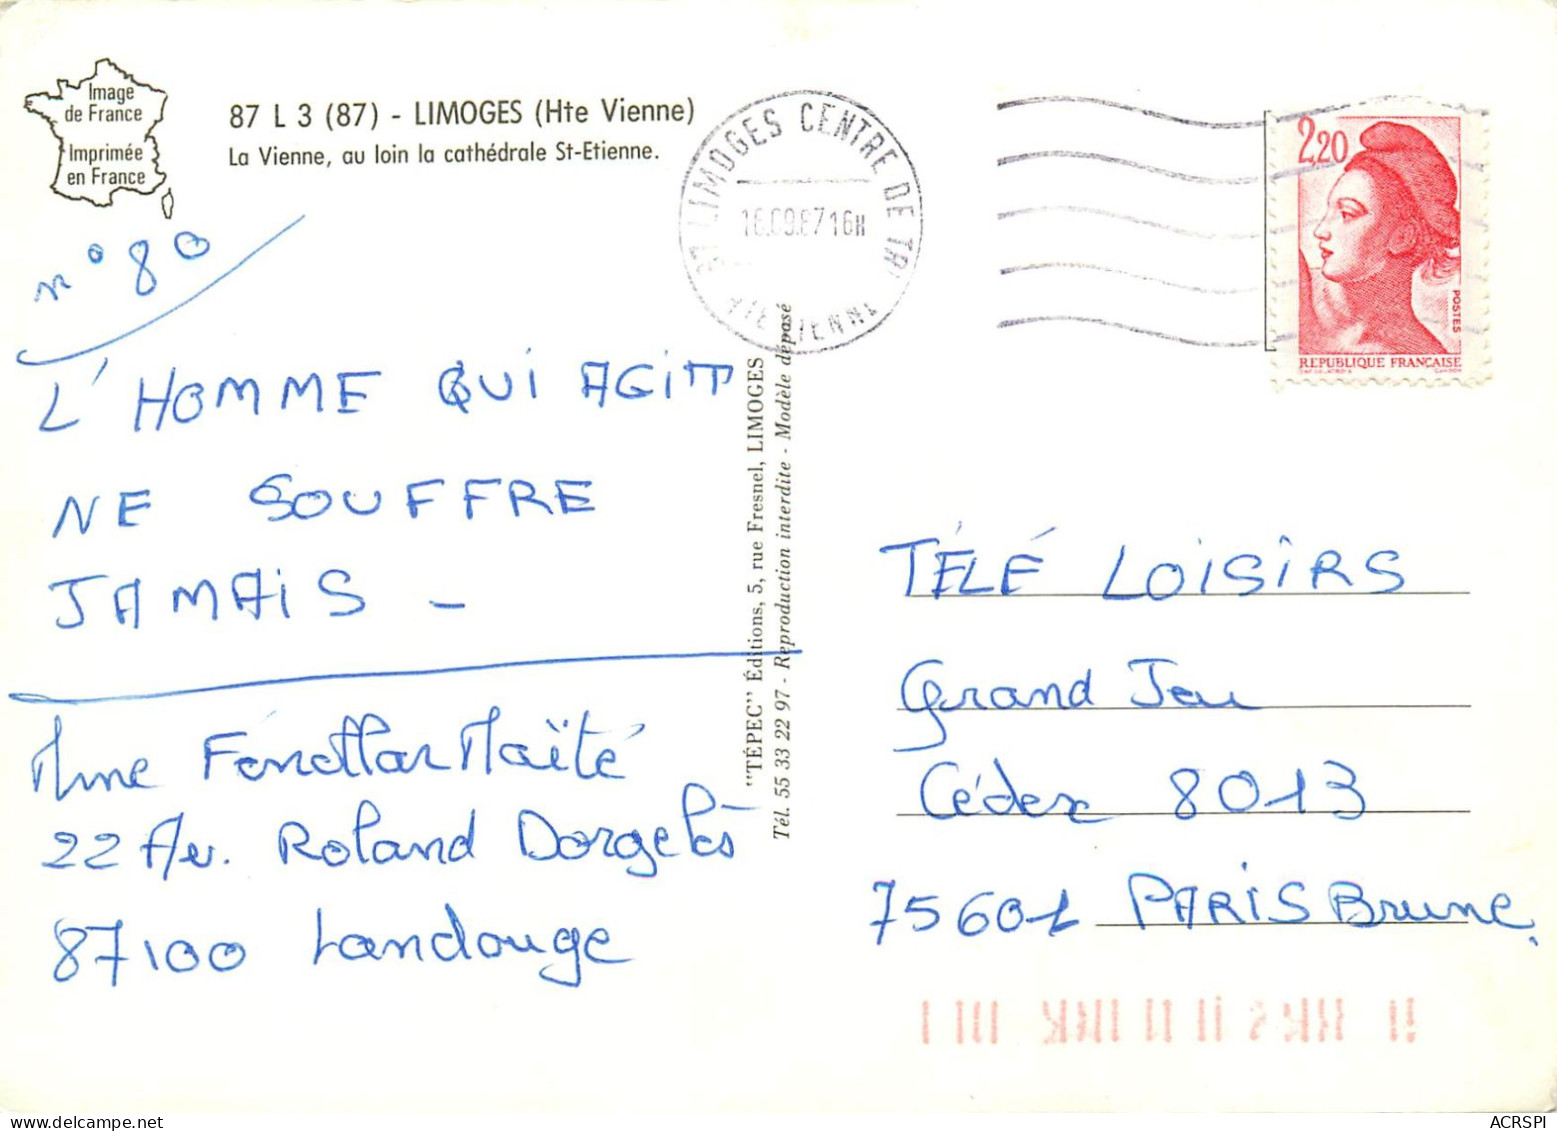 Image
de France
Imprimée
en France
87 L 3 (87) - LIMOGES (Hte Vienne)
La Vienne, au loin la cathédrale St-Etienne.
87 LIMOGES CENTRE DE TRI
HTE VIENNE
16.09.87 16H
2,20
POSTES
REPUBLIQUE FRANÇAISE
n° 80
L'HOMME QUI AGIT
NE SOUFFRE
JAMAIS -
Mme Maïté
22 Av. Roland Dorgelès
87100 Landouge
"TÉPEC" Éditions, 5, rue Fresnel, LIMOGES
Tél. 55 33 22 97 - Reproduction interdite - Modèle déposé
TÉLÉ LOISIRS
Grand Jeu
Cédex 8013
75601 PARIS Brune.
ACRSPI